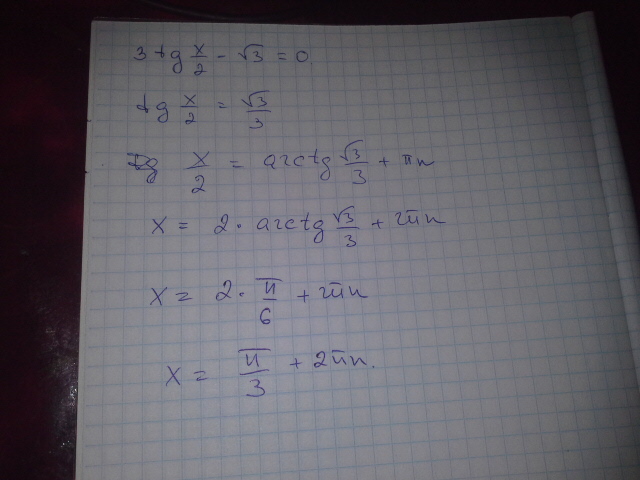 3 tg x/2 - √3 = 0.
tg x/2 = √3/3
x/2 = arctg √3/3 + πn
x = 2 · arctg √3/3 + 2πn
x = 2 · π/6 + 2πn
x = π/3 + 2πn.